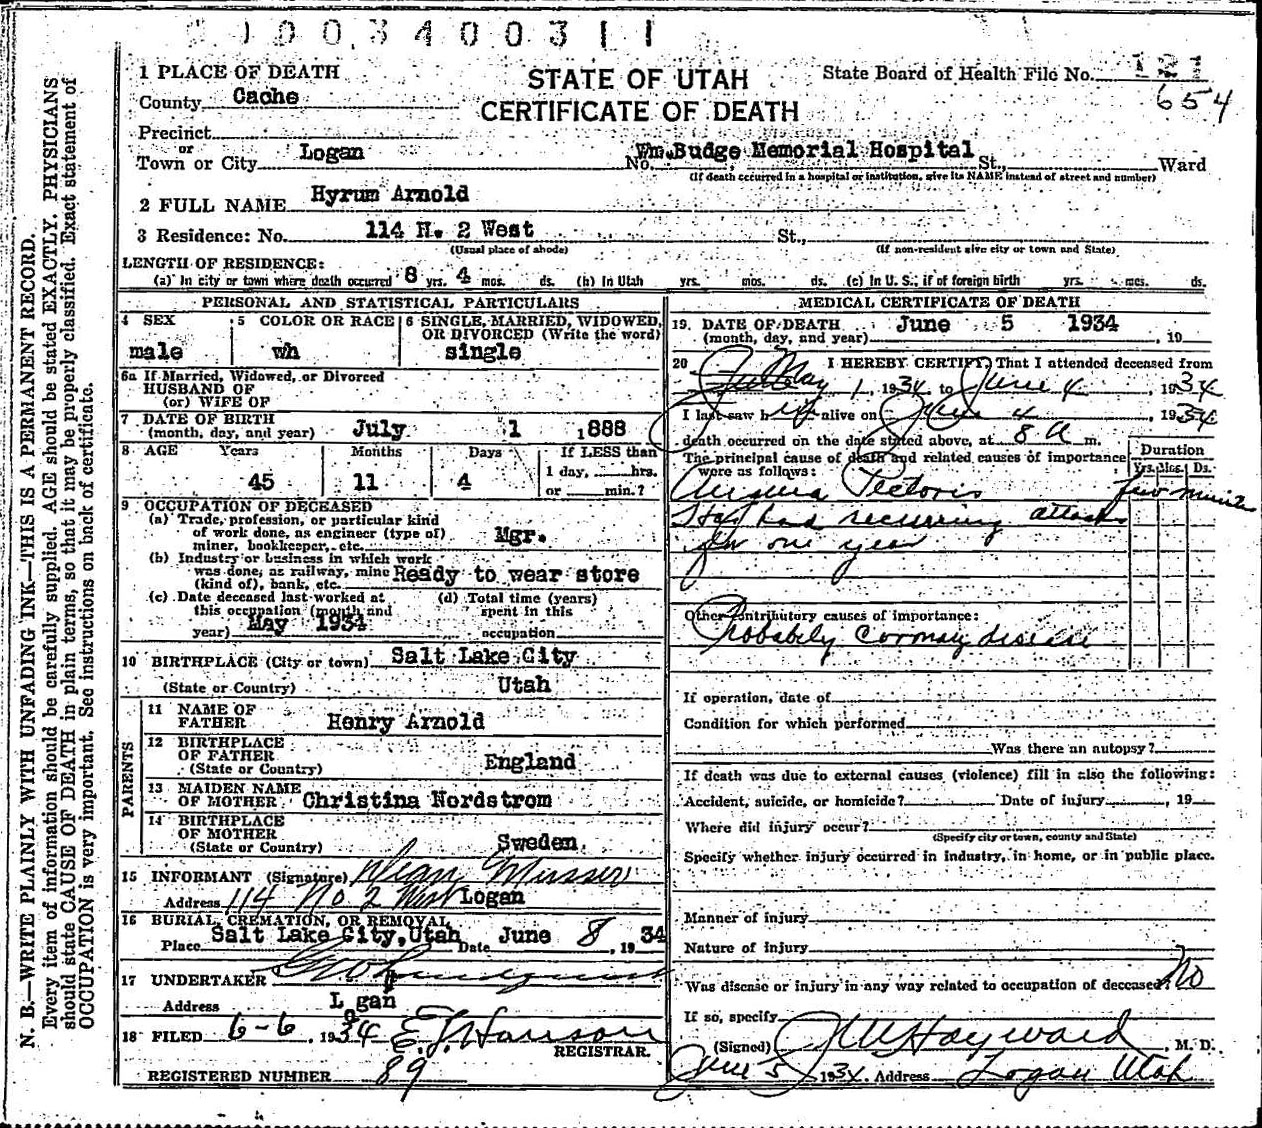 0 0 3 4 0 0 3 1 1
1 PLACE OF DEATH
STATE OF UTAH
CERTIFICATE OF DEATH
State Board of Health File No. 121
654
County Cache
Precinct
or
Town or City Logan No. Wm. Budge Memorial Hospital St., Ward
(If death occurred in a hospital or institution, give its NAME instead of street and number)
2 FULL NAME Hyrum Arnold
3 Residence: No. 114 N. 2 West St.,
(Usual place of abode) (If non-resident give city or town and State)
LENGTH OF RESIDENCE:
(a) In city or town where death occurred 8 yrs. 4 mos. ds. (b) In Utah yrs. mos. ds. (c) In U. S., if of foreign birth yrs. mos. ds.
PERSONAL AND STATISTICAL PARTICULARS
4 SEX
male
5 COLOR OR RACE
wh
6 SINGLE, MARRIED, WIDOWED,
OR DIVORCED (Write the word)
single
6a If Married, Widowed, or Divorced
HUSBAND OF
(or) WIFE OF
7 DATE OF BIRTH
(month, day, and year) July 1 1888
8 AGE Years Months Days If LESS than
1 day, hrs.
45 11 4 or min.?
9 OCCUPATION OF DECEASED
(a) Trade, profession, or particular kind
of work done, as engineer (type of)
miner, bookkeeper, etc. Mgr.
(b) Industry or business in which work
was done, as railway, mine
(kind of), bank, etc. Ready to wear store
(c) Date deceased last worked at
this occupation (month and
year) May 1934
(d) Total time (years)
spent in this
occupation
10 BIRTHPLACE (City or town) Salt Lake City
(State or Country) Utah
PARENTS
11 NAME OF
FATHER Henry Arnold
12 BIRTHPLACE
OF FATHER
(State or Country) England
13 MAIDEN NAME
OF MOTHER Christina Nordstrom
14 BIRTHPLACE
OF MOTHER
(State or Country) Sweden
15 INFORMANT (Signature) Dean Musser
Address 114 No 2 West Logan
16 BURIAL, CREMATION, OR REMOVAL
Place Salt Lake City, Utah Date June 8, 1934
17 UNDERTAKER
Address Logan
18 FILED 6-6 1934 E. J. Hanson
REGISTRAR.
REGISTERED NUMBER 89
MEDICAL CERTIFICATE OF DEATH
19. DATE OF DEATH June 5 1934
(month, day, and year) , 19
20 I HEREBY CERTIFY, That I attended deceased from
May 1, 1934 to June 4, 1934
I last saw h alive on June 4, 1934
death occurred on the date stated above, at 8 A m.
The principal cause of death and related causes of importance
were as follows:
Duration
Yrs. Mos. Ds.
Angina Pectoris few minutes
Has had recurring attacks
for one year
Other contributory causes of importance:
Probabily Coronary disease
If operation, date of
Condition for which performed
Was there an autopsy?
If death was due to external causes (violence) fill in also the following:
Accident, suicide, or homicide? Date of injury , 19
Where did injury occur?
(Specify city or town, county and State)
Specify whether injury occurred in industry, in home, or in public place.
Manner of injury
Nature of injury
Was disease or injury in any way related to occupation of deceased? No
If so, specify
(Signed) J W Hayward, M. D.
June 5 1934. Address Logan Utah
N. B.—WRITE PLAINLY WITH UNFADING INK—THIS IS A PERMANENT RECORD.
Every item of information should be carefully supplied. AGE should be stated EXACTLY. PHYSICIANS
should state CAUSE OF DEATH in plain terms, so that it may be properly classified. Exact statement of
OCCUPATION is very important. See instructions on back of certificate.